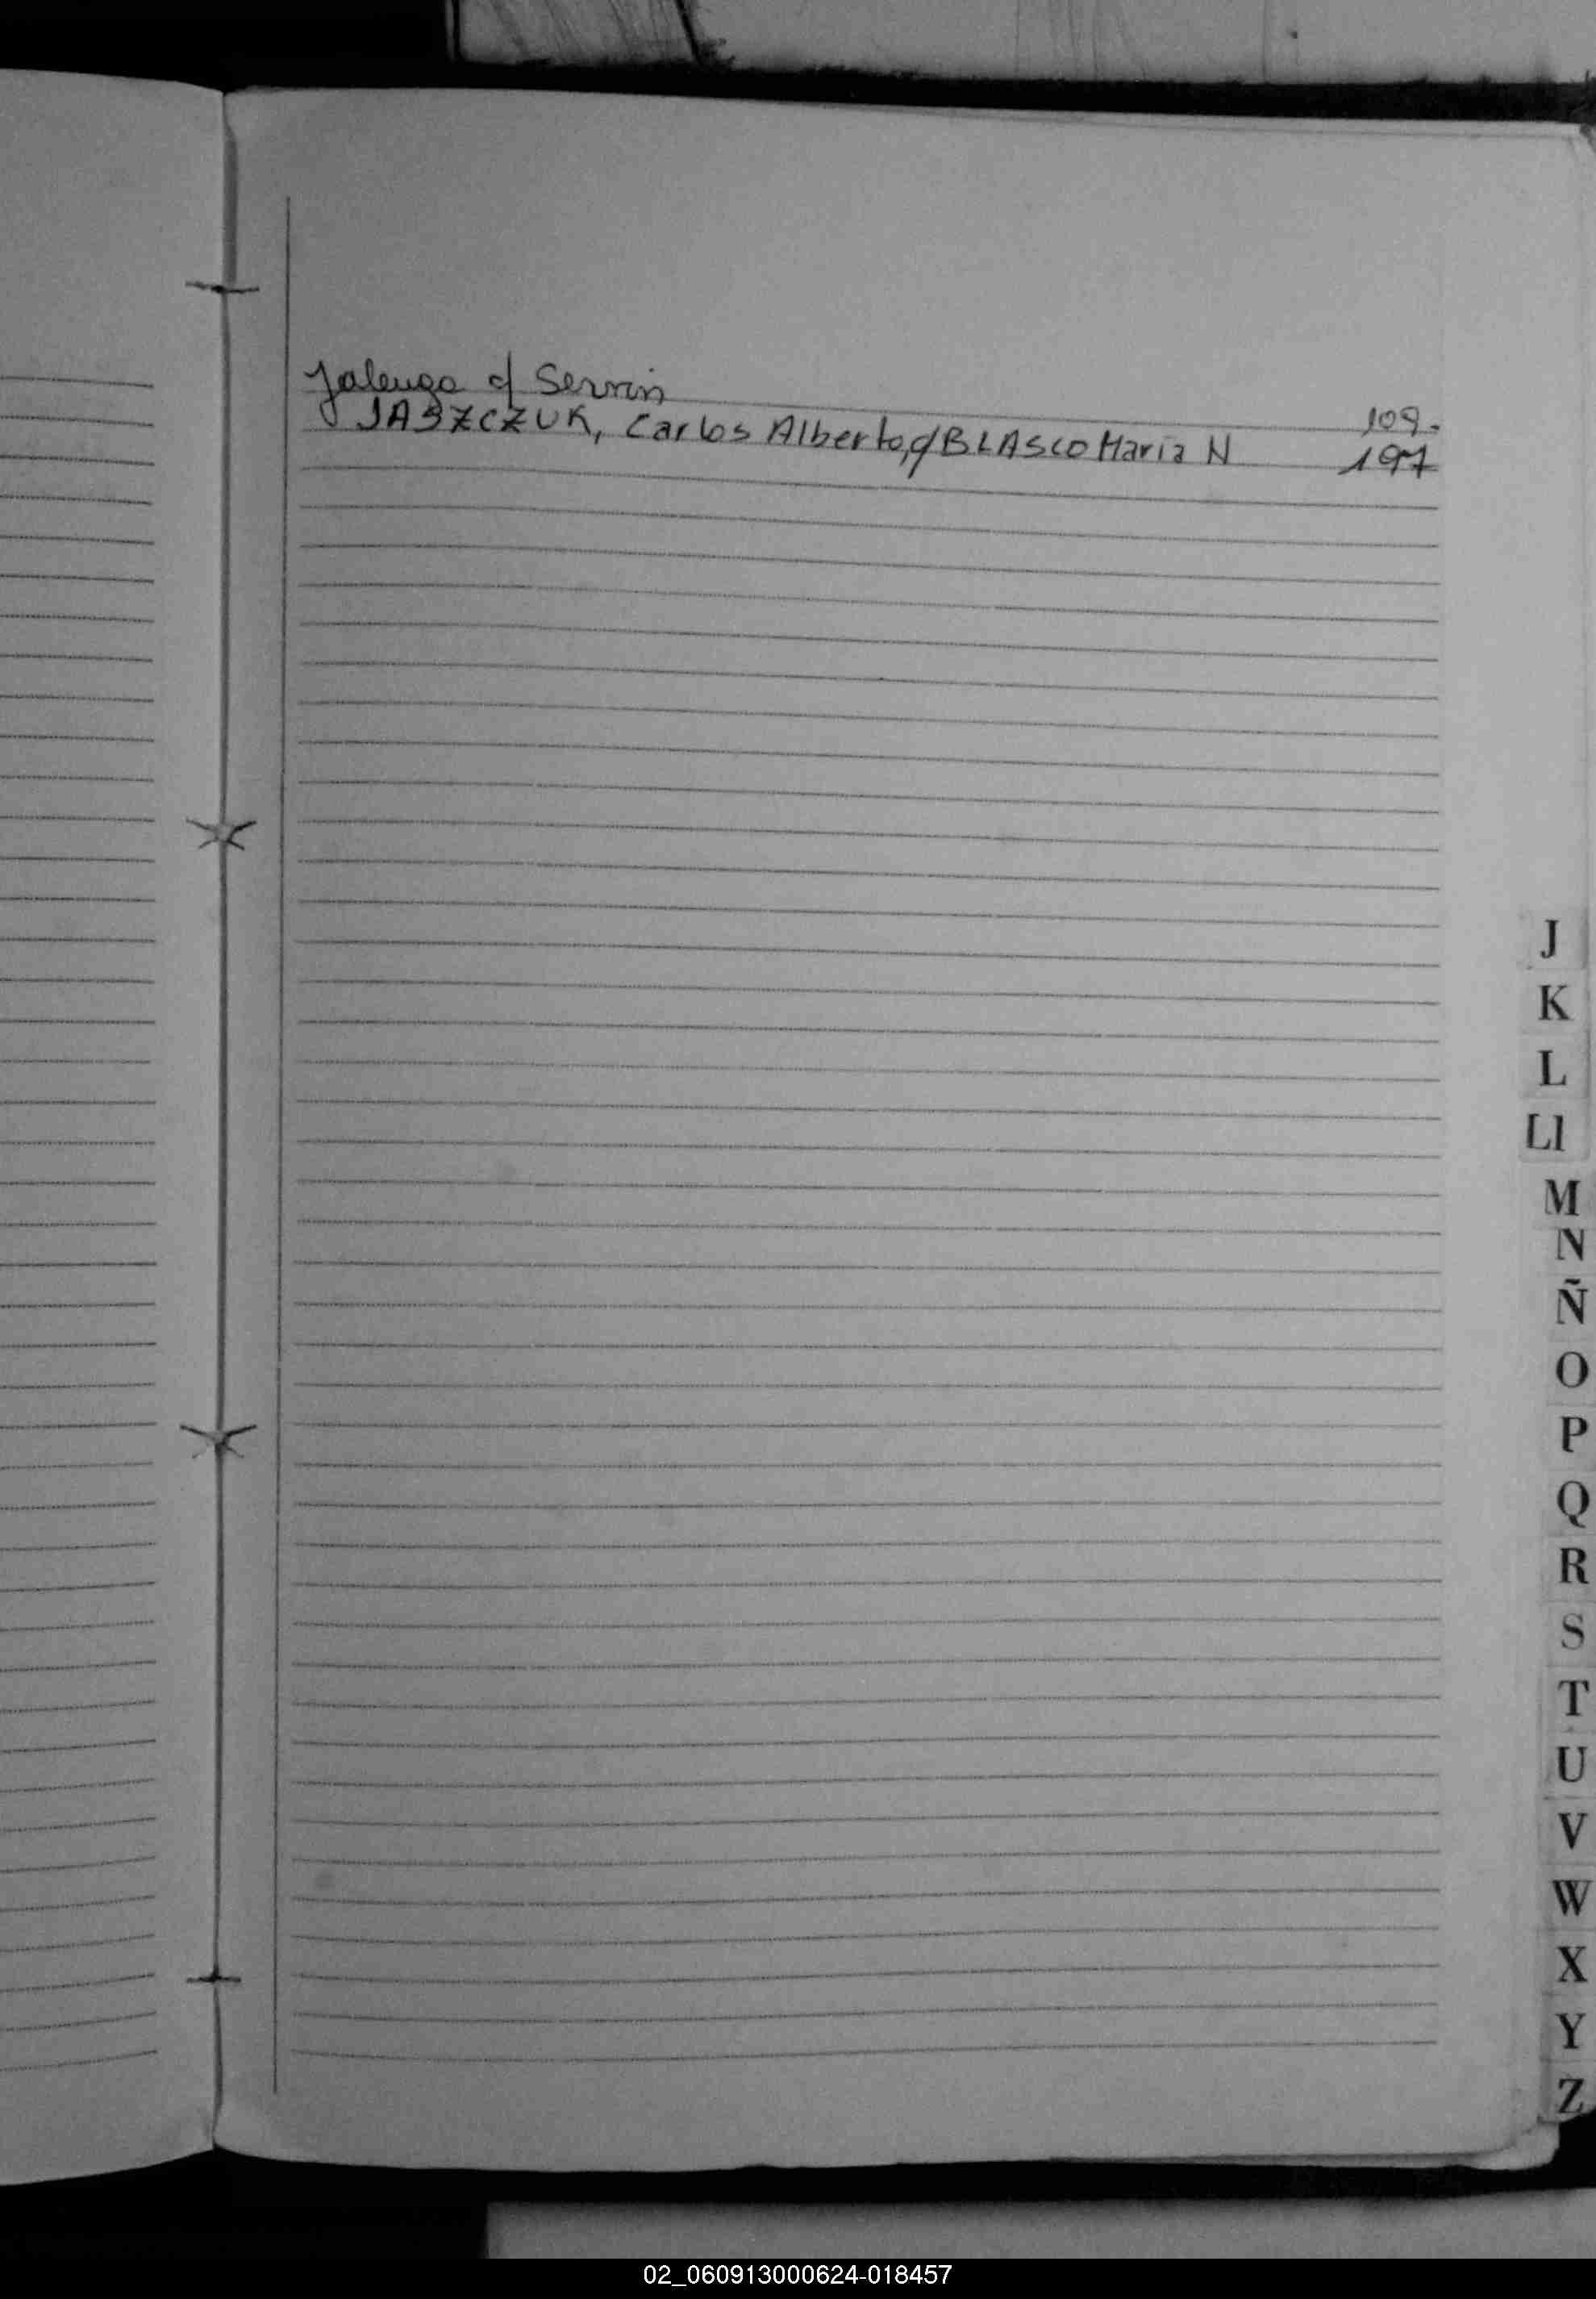 Jalenga c/ Servin 109.
JASZCZUK, Carlos Alberto, c/ BLASCO Maria N 197
J
K
L
Ll
M
N
Ñ
O
P
Q
R
S
T
U
V
W
X
Y
Z
02_060913000624-018457